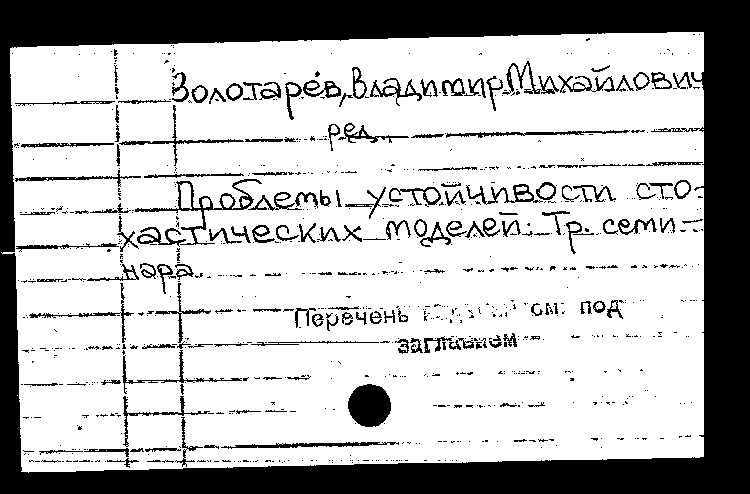 Золотарёв, Владимир Михайлович
ред.,
Проблемы устойчивости сто-
хастических моделей: Тр. семи-
нара.
Перечень см. под
заглавием